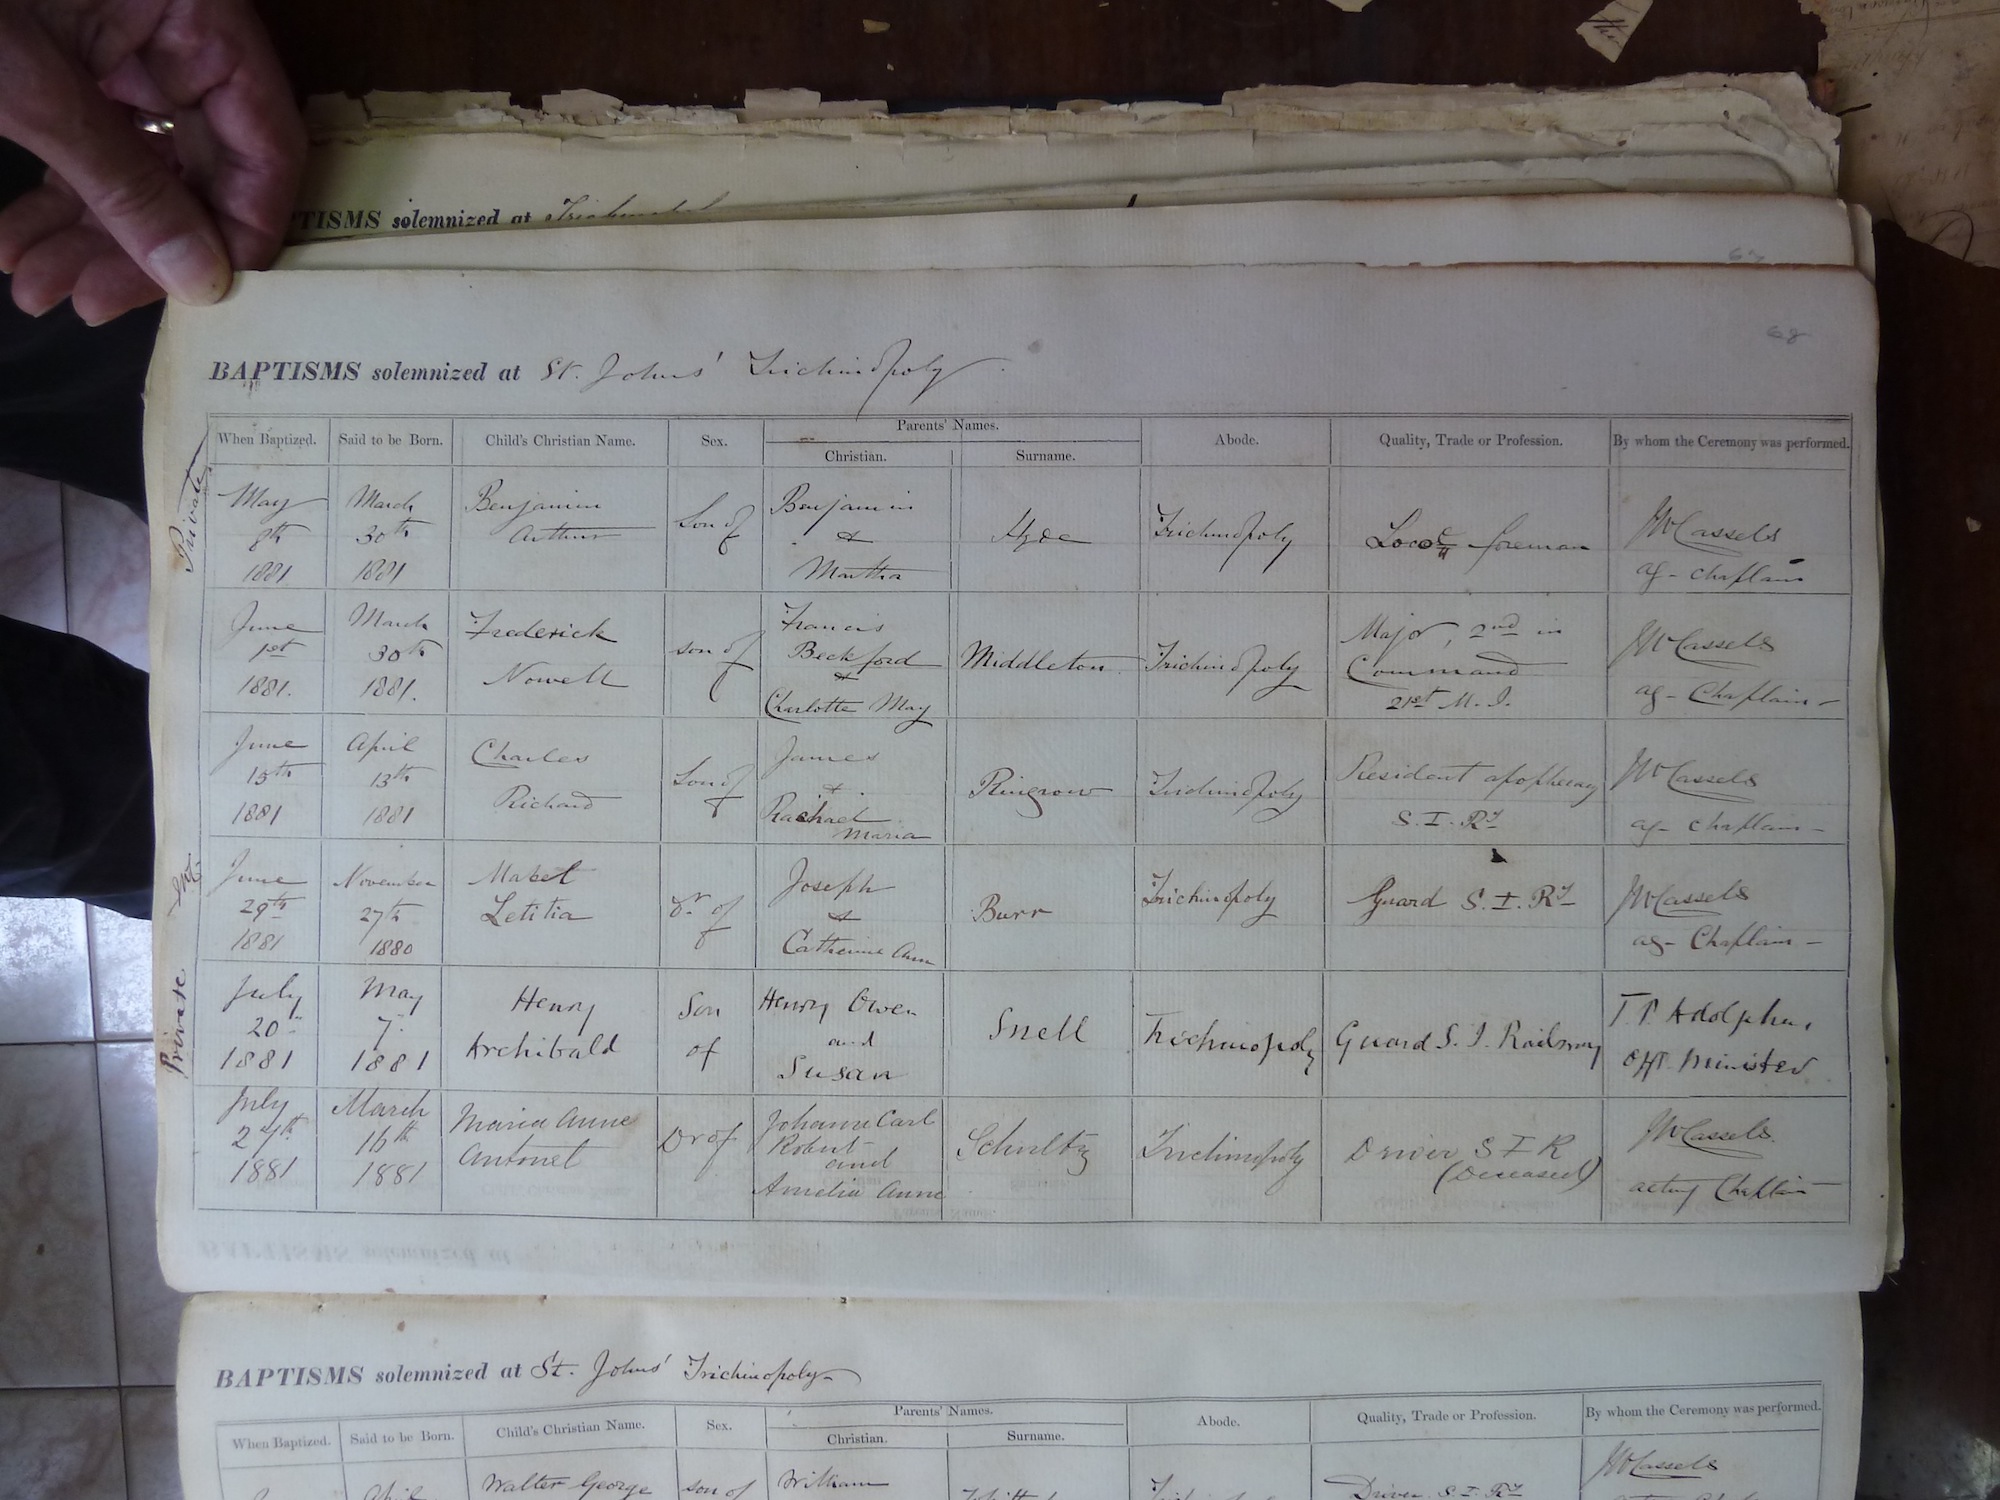 BAPTISMS solemnized at
68
BAPTISMS solemnized at St. Johns' Trichinopoly
When Baptized. Said to be Born. Child's Christian Name. Sex. Parents' Names. Abode. Quality, Trade or Profession. By whom the Ceremony was performed.
Christian. Surname.
Private
May 8th 1881 March 30th 1881 Benjamin Arthur Son of Benjamin & Martha Hyde Trichinopoly Loco foreman JW Cassels ag- Chaplain
June 1st 1881. March 30th 1881. Frederick Nowell son of Francis Beckford & Charlotte May Middleton Trichinopoly Major, 2nd in Command 21st M. I. JW Cassels ag- Chaplain-
June 15th 1881 April 13th 1881 Charles Richard Son of James & Rachael Maria Ringrow Trichinopoly Resident apothecary S. I. Ry JW Cassels ag- Chaplain-
June 29th 1881 November 27th 1880 Mabel Letitia Dr of Joseph & Catherine Ann Burr Trichinopoly Guard S. I. Ry JW Cassels ag- Chaplain-
Private
July 20th 1881 May 7. 1881 Henry Archibald Son of Henry Owen and Susan Snell Trichinopoly Guard S. I. Railway T. P. Adolphus, Offg. Minister
July 27th 1881 March 16th 1881 Maria Anne Antonet Dr of Johanne Carl Robert and Amelia Anne Schultz Trichinopoly Driver S I R (Deceased) JW Cassels acting Chaplain
BAPTISMS solemnized at St. Johns' Trichinopoly
When Baptized. Said to be Born. Child's Christian Name. Sex. Parents' Names. Abode. Quality, Trade or Profession. By whom the Ceremony was performed.
Christian. Surname.
April Walter George son of William Driver S. I. Ry JW Cassels